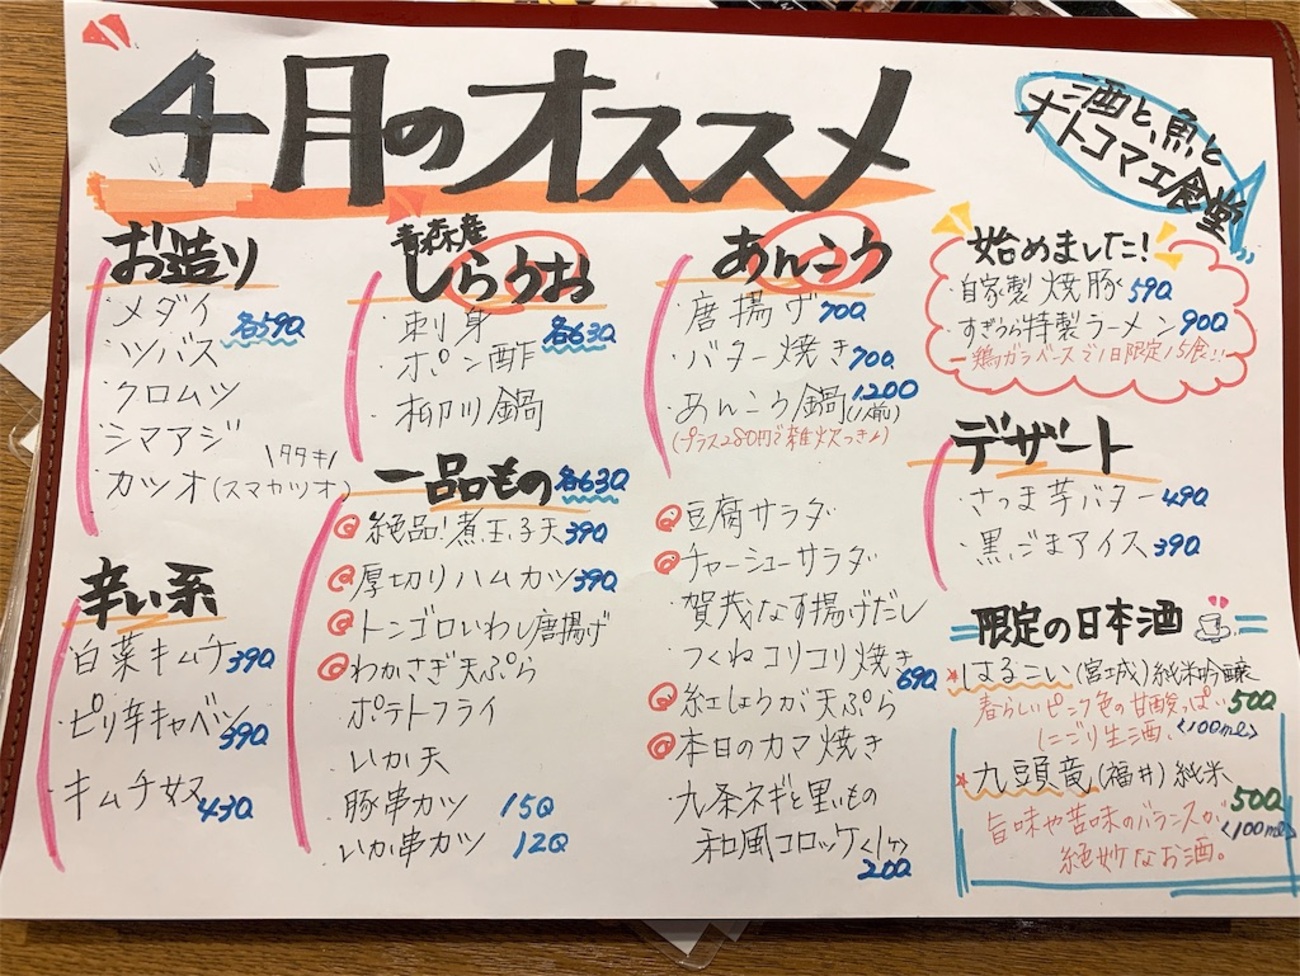 4月のオススメ
酒と、魚と
オトコマエ食堂
お造り
・メダイ 各590
・ツバス
・クロムツ
・シマアジ
\タタキ/
・カツオ(スマカツオ)
辛い系
・白菜キムチ 390
・ピリ辛キャベツ 390
・キムチ奴 430
青森産
しらうお
・刺身 各630
・ポン酢
・柳川鍋
一品もの 各630
絶品!煮玉子天 390
厚切りハムカツ 390
トンゴロいわし唐揚げ
わかさぎ天ぷら
・ポテトフライ
・いか天
・豚串カツ 150
・いか串カツ 120
あんこう
・唐揚げ 700
・バター焼き 700
・あんこう鍋 1,200
(1人前)
(プラス280円で雑炊つき♪)
豆腐サラダ
チャーシューサラダ
・賀茂なす揚げだし
・つくねコリコリ焼き 690
紅しょうが天ぷら
本日のカマ焼き
・九条ネギと里いもの
和風コロッケ<1ケ>
200
始めました!
・自家製焼豚 590
・すぎうら特製ラーメン 900
鶏ガラベースで1日限定15食!!
デザート
・さつま芋バター 490
・黒ごまアイス 390
限定の日本酒
はるこい(宮城)純米吟醸
春らしいピンク色の甘酸っぱい 500
にごり生酒。 <100ml>
九頭竜(福井)純米
500
旨味や苦味のバランスが <100ml>
絶妙なお酒。